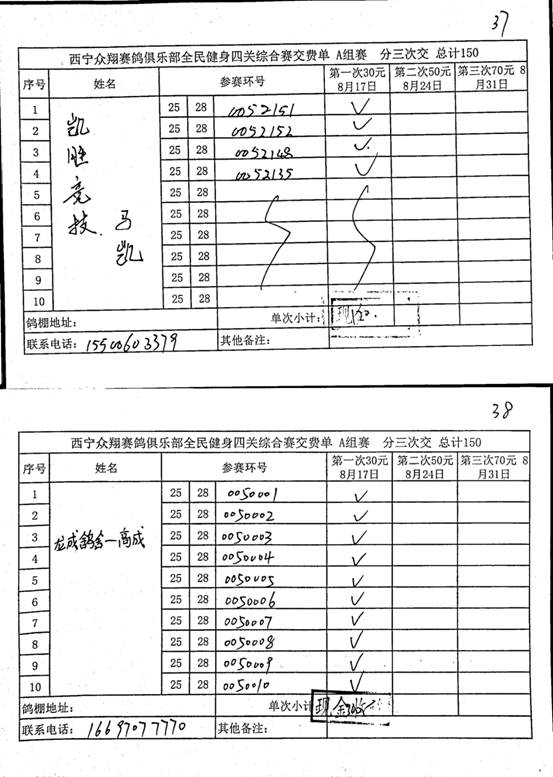 37
西宁众翔赛鸽俱乐部全民健身四关综合赛交费单 A组赛 分三次交 总计150
序号 姓名 参赛环号 第一次30元 8月17日 第二次50元 8月24日 第三次70元 8月31日
凯胜竞技.马凯
1 25 28 0052151 ✓
2 25 28 0052152 ✓
3 25 28 0052148 ✓
4 25 28 0052135 ✓
5 25 28
6 25 28
7 25 28
8 25 28
9 25 28
10 25 28
鸽棚地址: 单次小计: 现
联系电话: 15500603379 其他备注:
38
西宁众翔赛鸽俱乐部全民健身四关综合赛交费单 A组赛 分三次交 总计150
序号 姓名 参赛环号 第一次30元 8月17日 第二次50元 8月24日 第三次70元 8月31日
龙成鸽舍一高成
1 25 28 0050001 ✓
2 25 28 0050002 ✓
3 25 28 0050003 ✓
4 25 28 0050004 ✓
5 25 28 0050005 ✓
6 25 28 0050006 ✓
7 25 28 0050007 ✓
8 25 28 0050008 ✓
9 25 28 0050009 ✓
10 25 28 0050010 ✓
鸽棚地址: 单次小计 现金收
联系电话: 16697077770 其他备注: